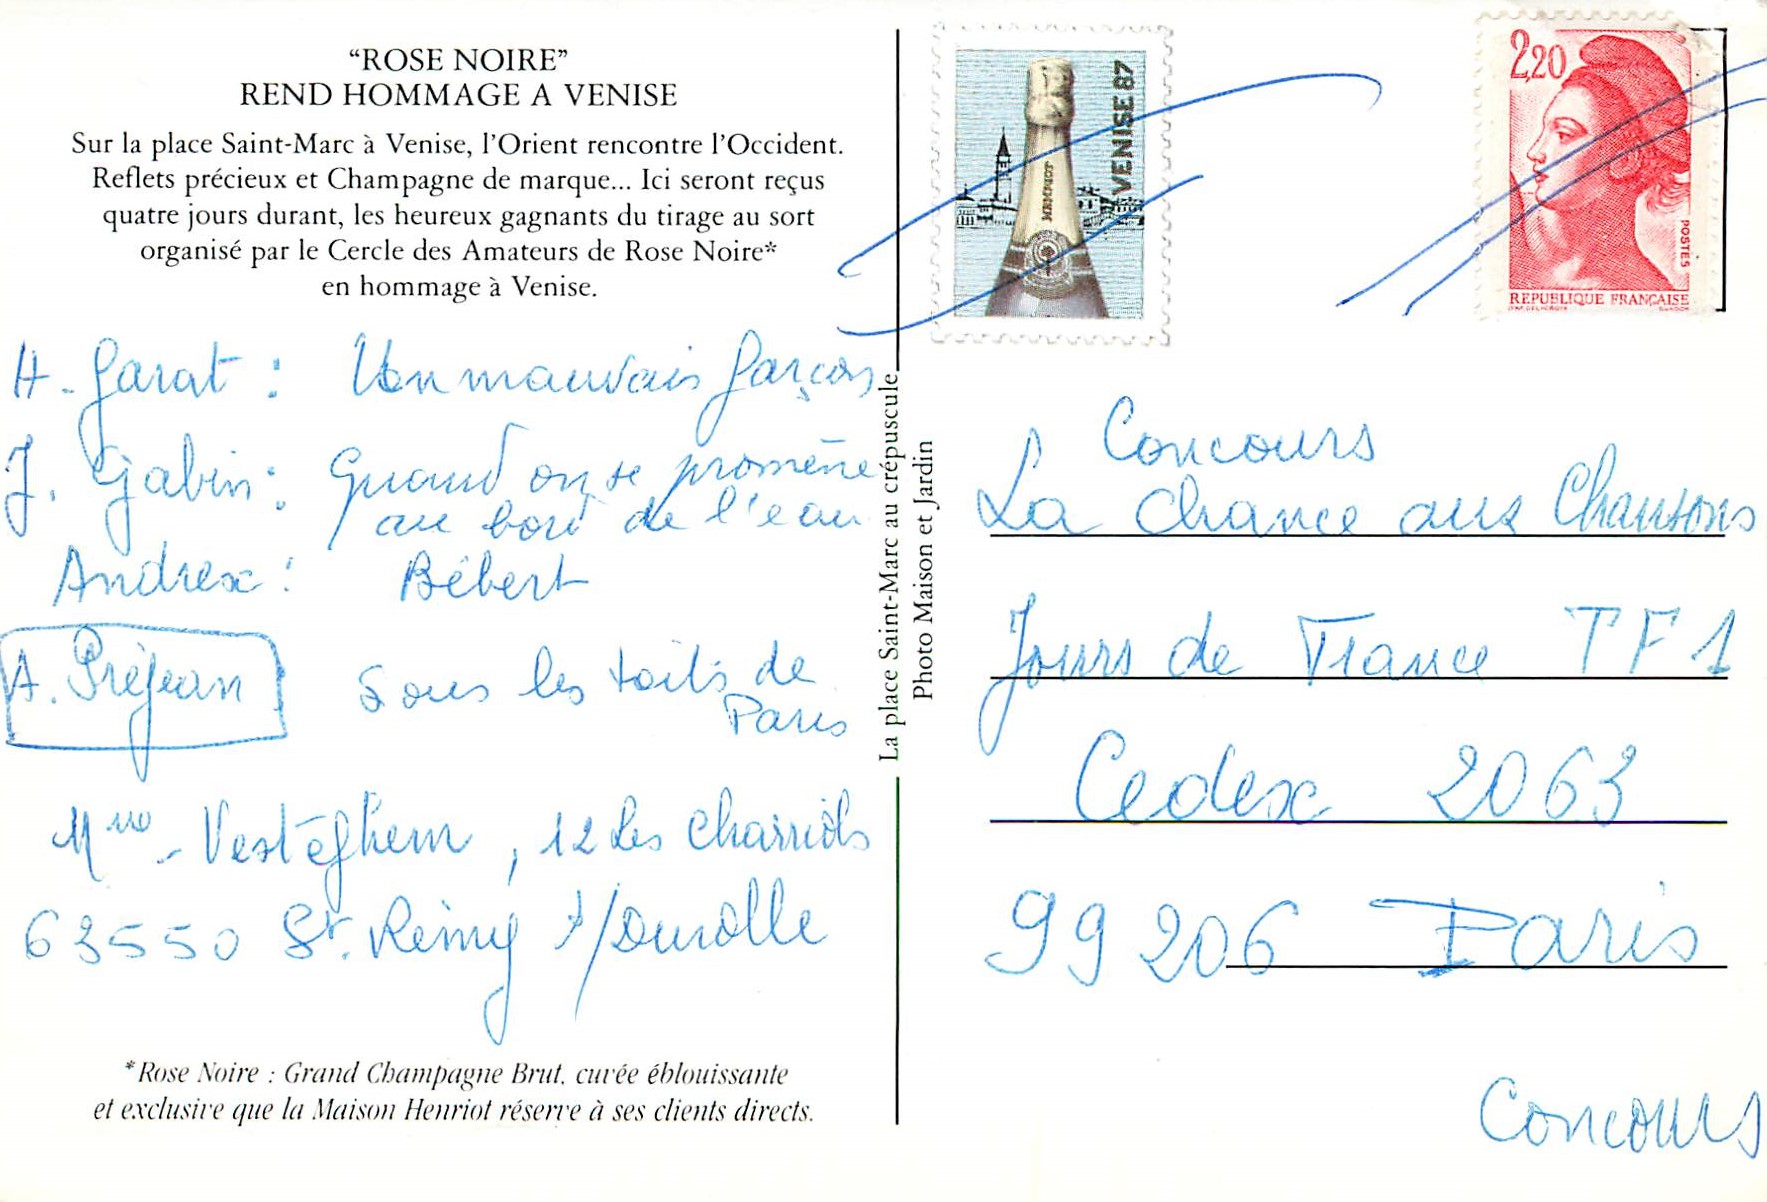 “ROSE NOIRE”
REND HOMMAGE A VENISE
Sur la place Saint-Marc à Venise, l’Orient rencontre l’Occident.
Reflets précieux et Champagne de marque... Ici seront reçus
quatre jours durant, les heureux gagnants du tirage au sort
organisé par le Cercle des Amateurs de Rose Noire*
en hommage à Venise.
H. Garat : Un mauvais garçon
J. Gabin : Quand on se promène
au bord de l'eau
Andrex : Bébert
A. Préjean Sous les toits de
Paris
Mme Vestéghem, 12 Les Charriols
63550 St. Rémy s/Durolle
*Rose Noire : Grand Champagne Brut, cuvée éblouissante
et exclusive que la Maison Henriot réserve à ses clients directs.
La place Saint-Marc au crépuscule
Photo Maison et Jardin
VENISE 87
HENRIOT
2,20
POSTES
REPUBLIQUE FRANÇAISE
Concours
La Chance aux Chansons
Jours de France TF1
Cedex 2063
99206 Paris
Concours